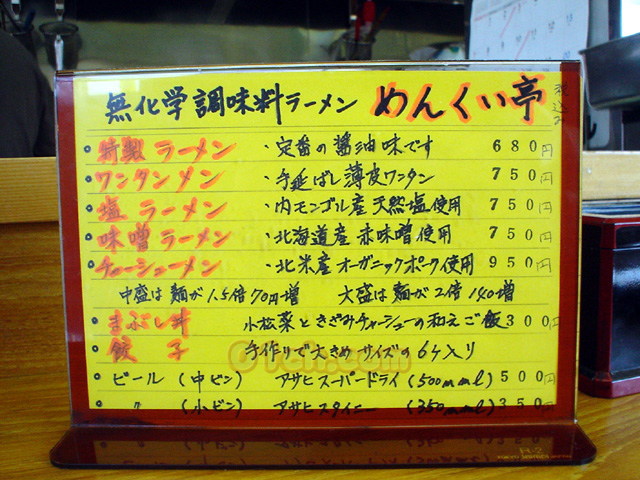 無化学調味料ラーメン めんくい亭 税込み
・特製ラーメン ・定番の醤油味です 680円
・ワンタンメン ・手延ばし薄皮ワンタン 750円
・塩ラーメン ・内モンゴル産天然塩使用 750円
・味噌ラーメン ・北海道産赤味噌使用 750円
・チャーシューメン ・北米産オーガニックポーク使用 950円
中盛は麺が1.5倍70円増 大盛は麺が2倍140増
・まぶし丼 小松菜ときざみチャーシューの和えご飯300円
・餃子 手作りで大きめサイズの6ケ入り
・ビール(中ビン) アサヒスーパードライ(500mml)500円
・〃(小ビン) アサヒスタイニー(250mml)350円